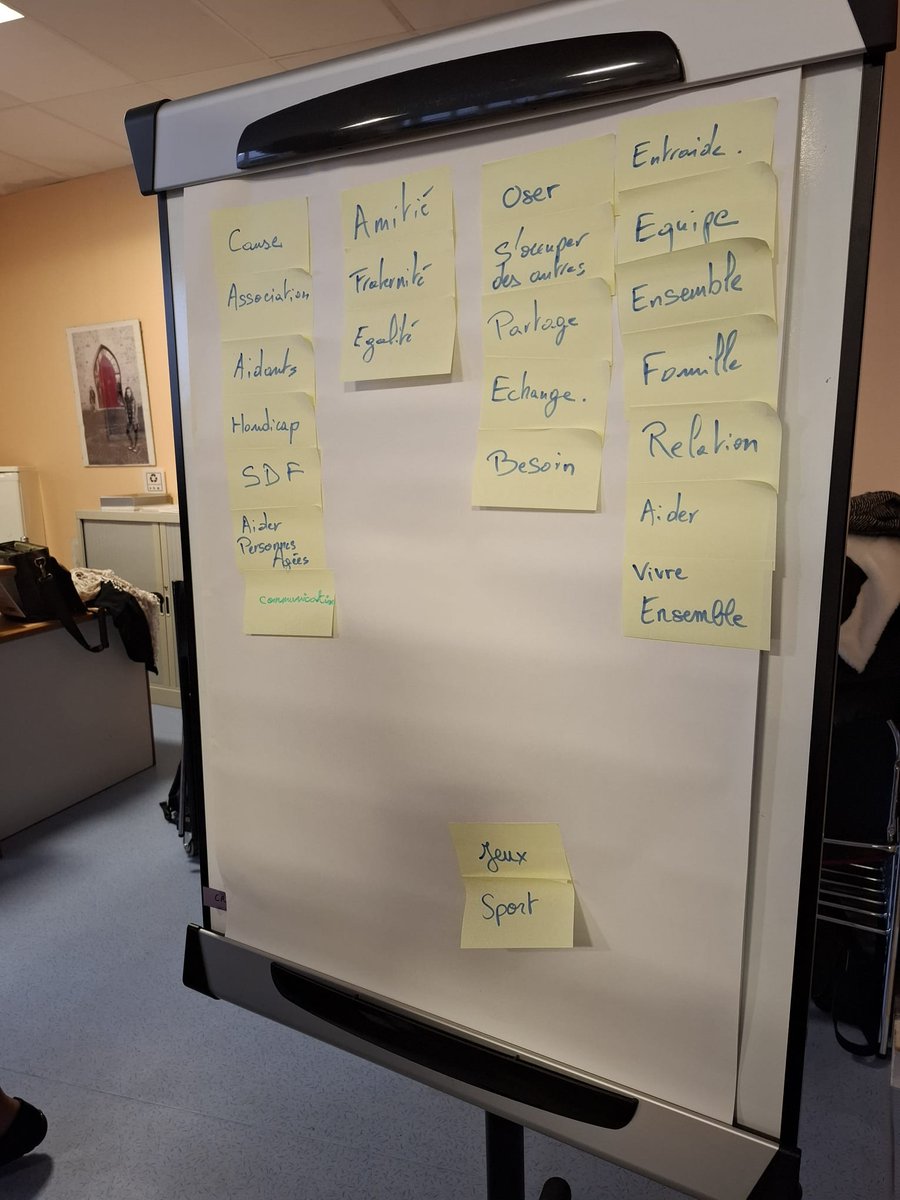 Cause
Association
Aidants
Handicap
SDF
Aider
Personnes
Agées
Communication
Amitié
Fraternité
Egalité
Oser
S'occuper
des autres
Partage
Echange.
Besoin
Entraide.
Equipe
Ensemble
Famille
Relation
Aider
Vivre
Ensemble
Jeux
Sport